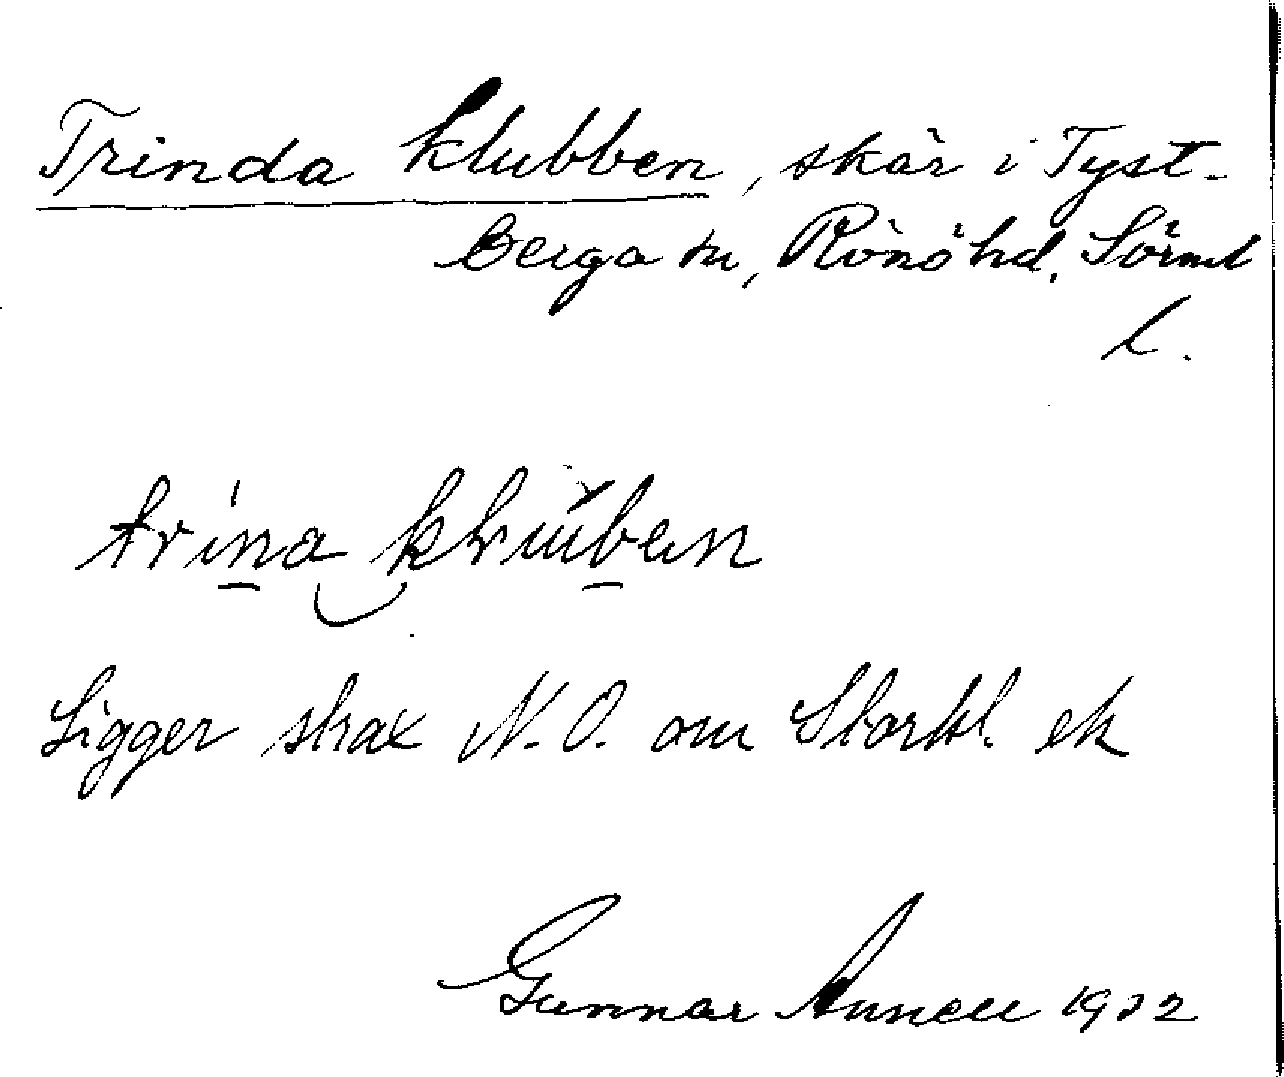 Trinda klubben, skär i Tyst-
berga sn, Rönö hd, Sörml
l.
trina
Ligger strax N.O. om Storkl. ek
Gunnar Annell 1932